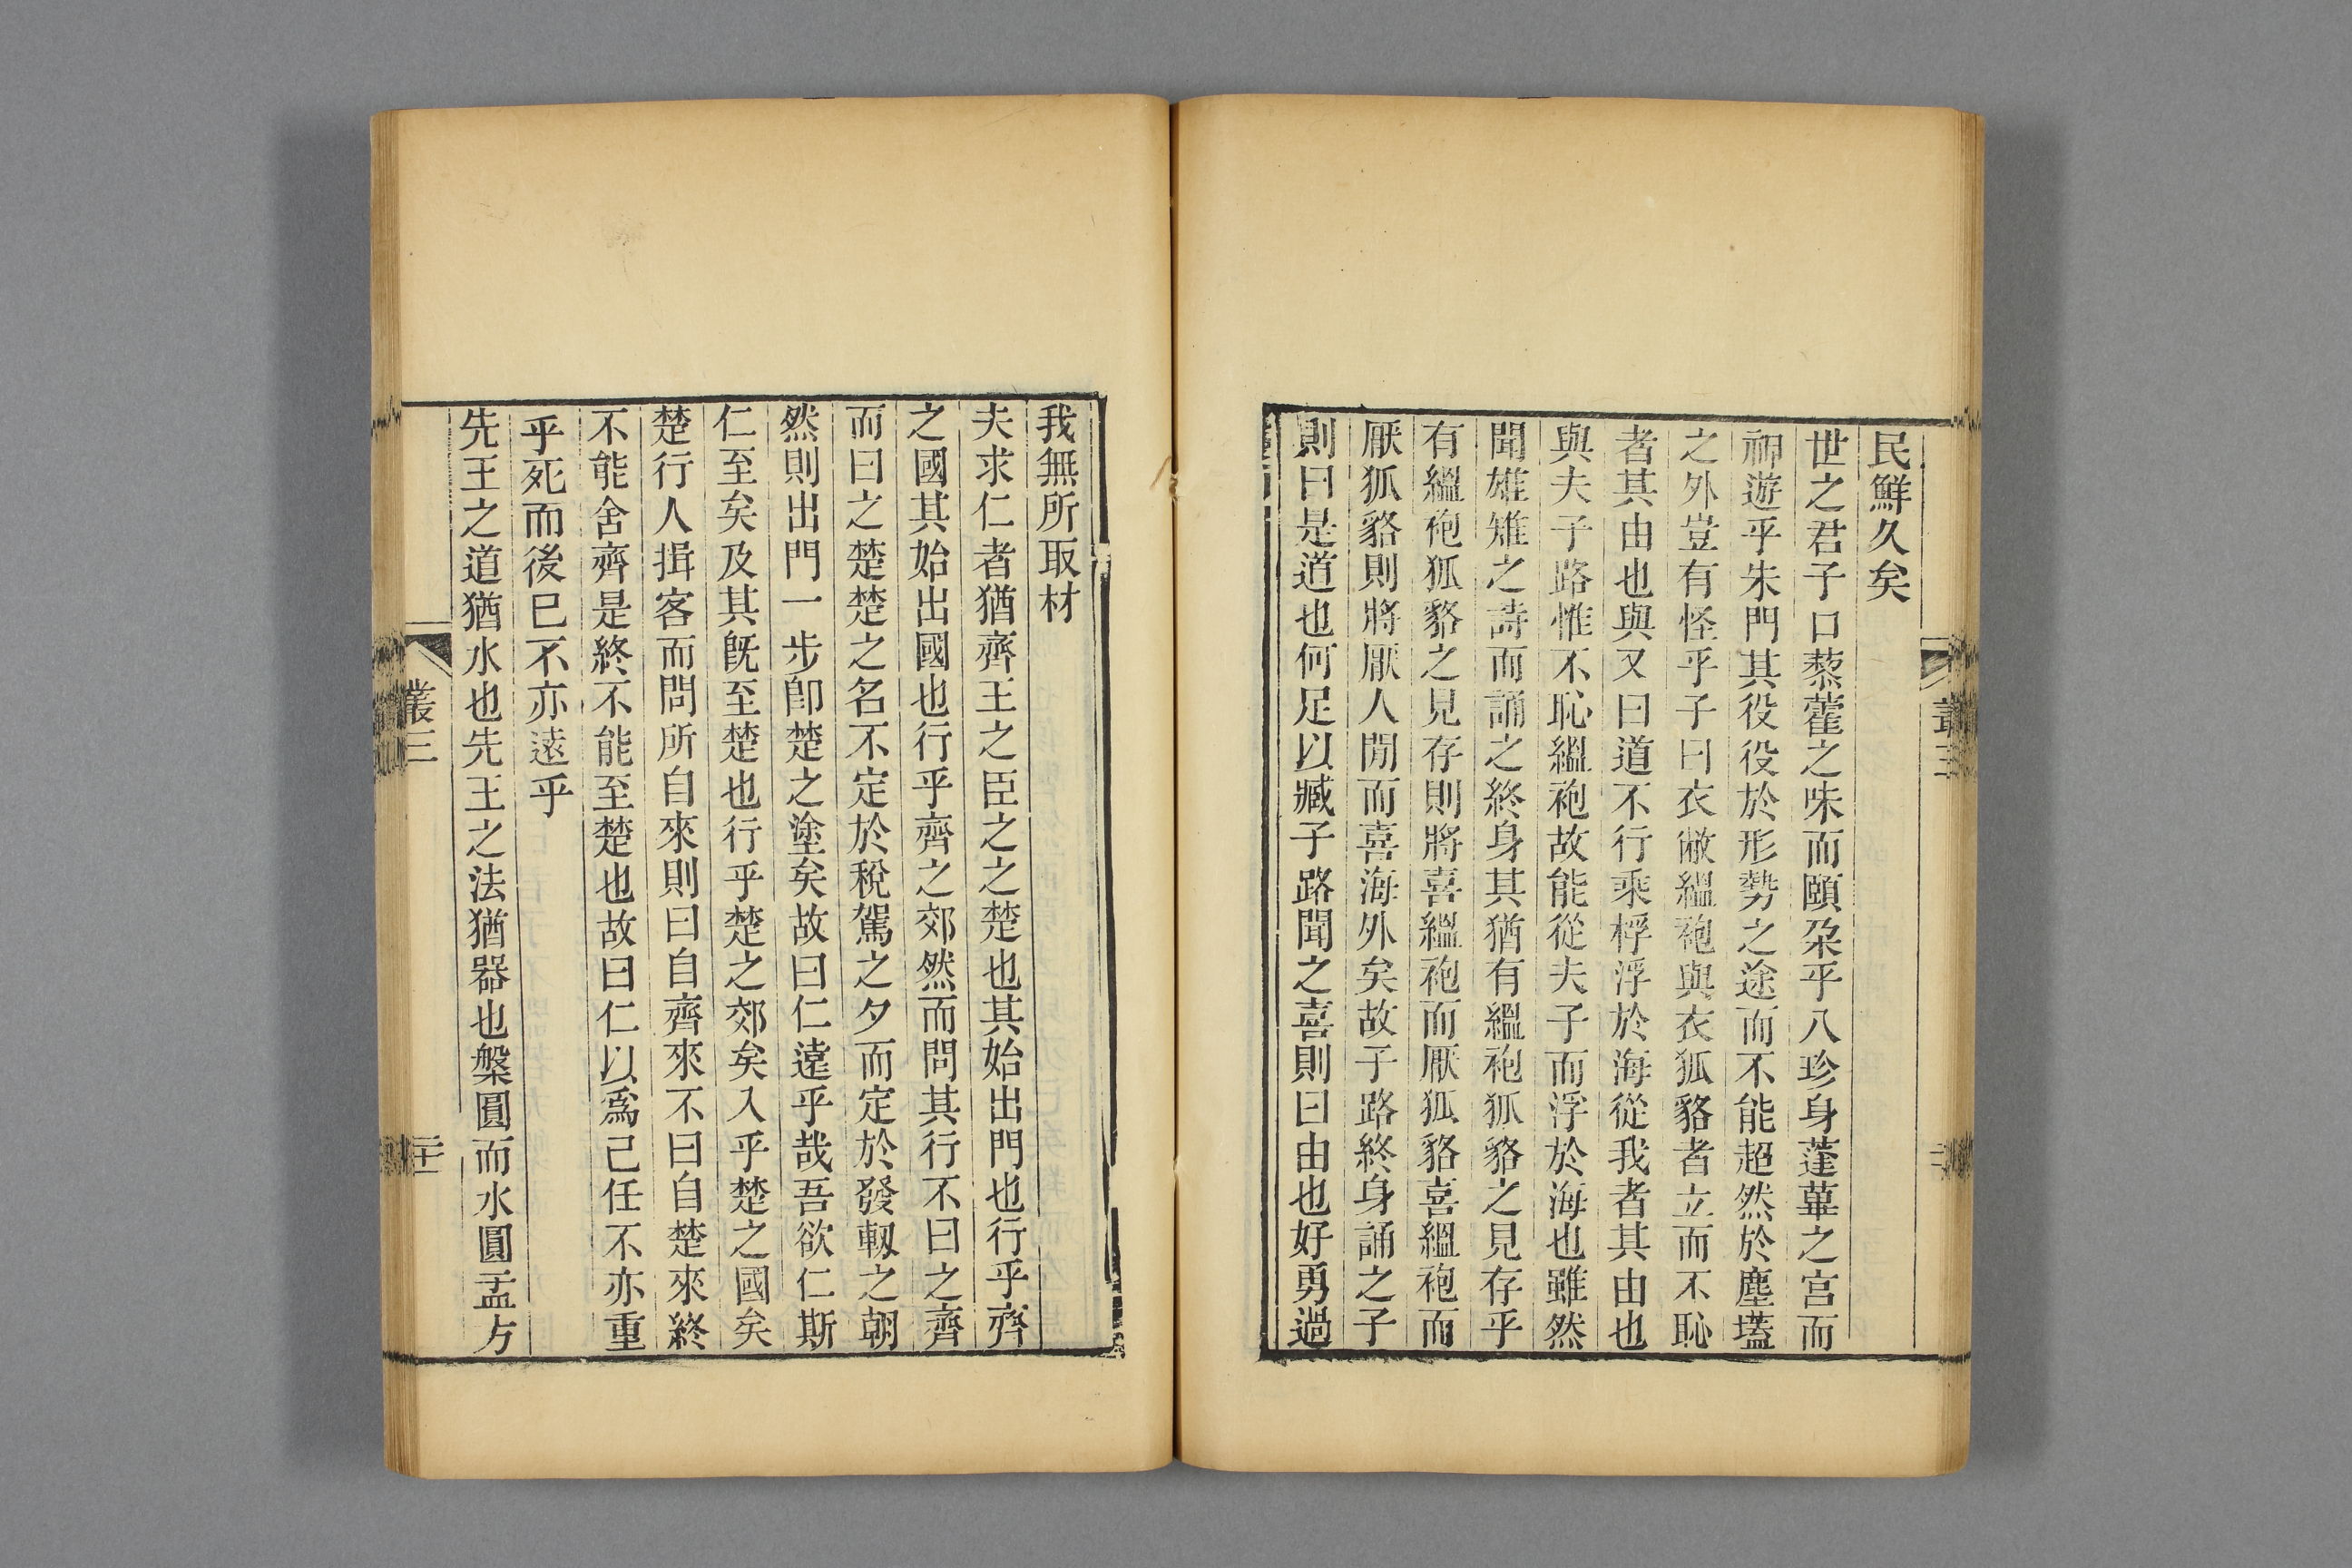 民鮮久矣
世之君子口藜藿之味而頤朶乎八珍身蓬蓽之宮而
神遊乎朱門其役役於形勢之途而不能超然於塵壒
之外豈有怪乎子曰衣敝縕袍與衣狐貉者立而不恥
者其由也與又曰道不行乘桴浮於海從我者其由也
與夫子路惟不恥縕袍故能從夫子而浮於海也雖然
聞雄雉之詩而誦之終身其猶有縕袍狐貉之見存乎
有縕袍狐貉之見存則將喜縕袍而厭狐貉喜縕袍而
厭狐貉則將厭人閒而喜海外矣故子路終身誦之子
則曰是道也何足以臧子路聞之喜則曰由也好勇過
叢三
我無所取材
夫求仁者猶齊王之臣之之楚也其始出門也行乎齊
之國其始出國也行乎齊之郊然而問其行不曰之齊
而曰之楚楚之名不定於稅駕之夕而定於發軔之朝
然則出門一步卽楚之塗矣故曰仁遠乎哉吾欲仁斯
仁至矣及其旣至楚也行乎楚之郊矣入乎楚之國矣
楚行人揖客而問所自來則曰自齊來不曰自楚來終
不能舍齊是終不能至楚也故曰仁以爲己任不亦重
乎死而後已不亦遠乎
先王之道猶水也先王之法猶器也槃圓而水圓盂方
叢三